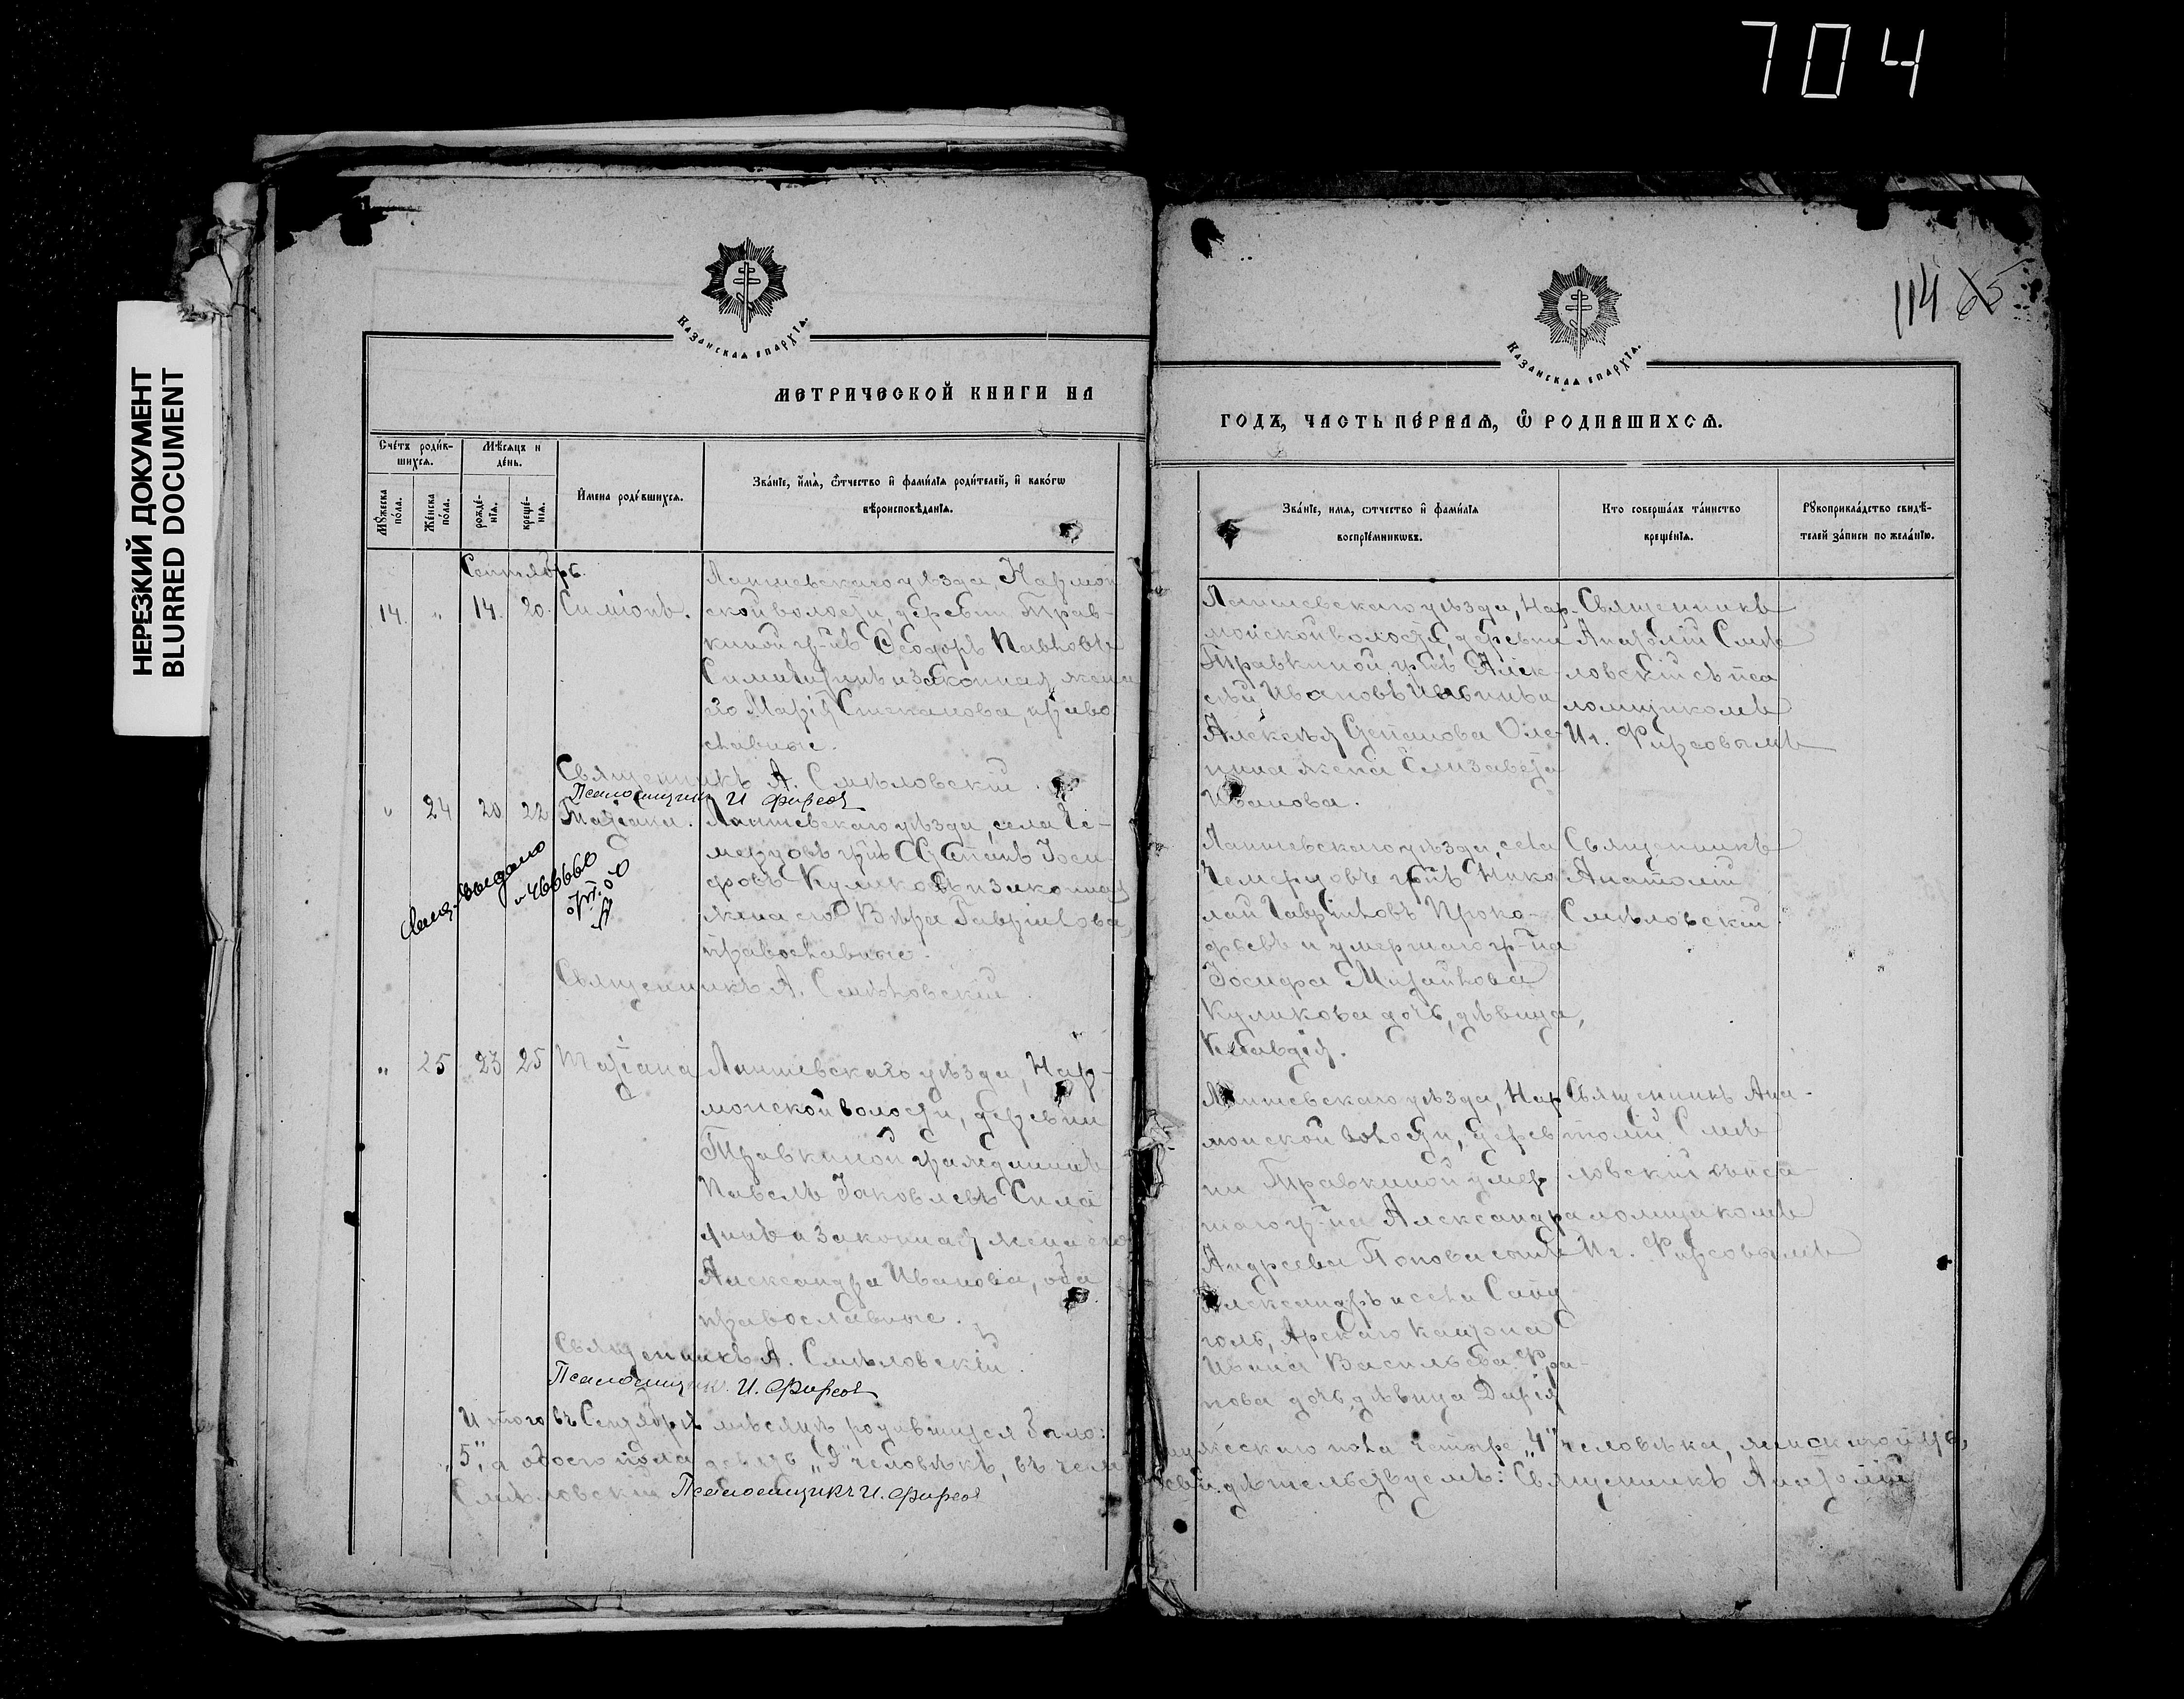 704
НЕРЕЗКИЙ ДОКУМЕНТ
BLURRED DOCUMENT
Казанская епархїа.
МЕТРИЧЕСКОЙ КНИГИ НА
Сче́тъ роди́в-
шихся.
Мѣ́сяцъ и
де́нь.
Мꙋ́жеска
по́ла.
Же́нска
по́ла.
рожде́-
нїя.
креще́-
нїя.
И҆мена роди́вшихся.
Зва́нїе, и҆́мя, ѻ҆́тчество и҆ фами́лїя роди́телей, и҆ како́гѡ
вѣроисповѣ́данїя.
Сентябрь.
14. „ 14. 20. Симіонъ.
Лаишевскаго уѣзда, Нармон
ской волости, деревни Трав-
киной гр-нъ Ѳеодоръ Павловъ
и законная жена
его Марія Степанова, право
славные.
Священникъ А. Смѣловскій
Псаломщик И Фирсов
„ 24 20 22 Татіана.
Лаишевскаго уѣзда, села Че-
мерцовъ гр-нъ Стефанъ Іоси-
фовъ Куликовъ и законная
жена его Вѣра Гаврилова,
православные.
выдано
Священникъ А. Смѣловскій
„ 25 23 25 Татіана
Лаишевскаго уѣзда, Нар-
монской волости, деревни
Травкиной гражданинъ
Павелъ Іаковлевъ Сила
и законная жена его
Александра Иванова, оба
православные.
Священникъ А. Смѣловскій.
Псаломщик. И. Фирсов
Итого въ Сентябрѣ мѣсяцѣ родившихся было:
„5“, а обоего пола девять „9“ человѣкъ, въ чемъ
Смѣловскій Псаломщикъ И. Фирсов
114 65
Казанская епархїа.
ГОДЪ, ЧАСТЬ ПЕ́РВАЯ, Ѿ РОДИВШИХСЯ.
Зва́нїе, имя, ѻтчество и҆ фами́лїя
воспрїе́мникѡвъ.
Кто соверша́лъ та́инство
креще́нїя.
Рꙋкоприкла́дство свидѣ́-
телей за́писи по жела́нїю.
Лаишевскаго уѣзда, Нар-
монской волости, деревни
Травкиной гр-нъ Алек-
сѣй Ивановъ
Алексѣя Степанова Оле-
нина жена Елизавета
Иванова.
Священникъ
Анатолій Смѣ
ловскій съ пса
ломщикомъ
Ил. Фирсовымъ
Лаишевскаго уѣзда, села
Чемерцовъ гр-нъ Нико
лай Гавриловъ Проко-
фьевъ и умершаго гр-на
Іосифа Михайлова
Куликова дочь, дѣвица,
Клавдія.
Священникъ
Анатолій
Смѣловскій.
Лаишевскаго уѣзда, Нар
монской волости, дерев
ни Травкиной умер
шаго гр-на Александра
Андреева Попова сынъ
Александръ и села
Арскаго кантона
Ивана Васильева
нова дочь, дѣвица Дарія
Священникъ Ана-
толій Смѣ
ловскій съ пса-
ломщикомъ
Ил. Фирсовымъ
мужескаго пола четыре „4“ человѣка, женскаго
свидѣтельствуемъ: Священникъ Анатолій